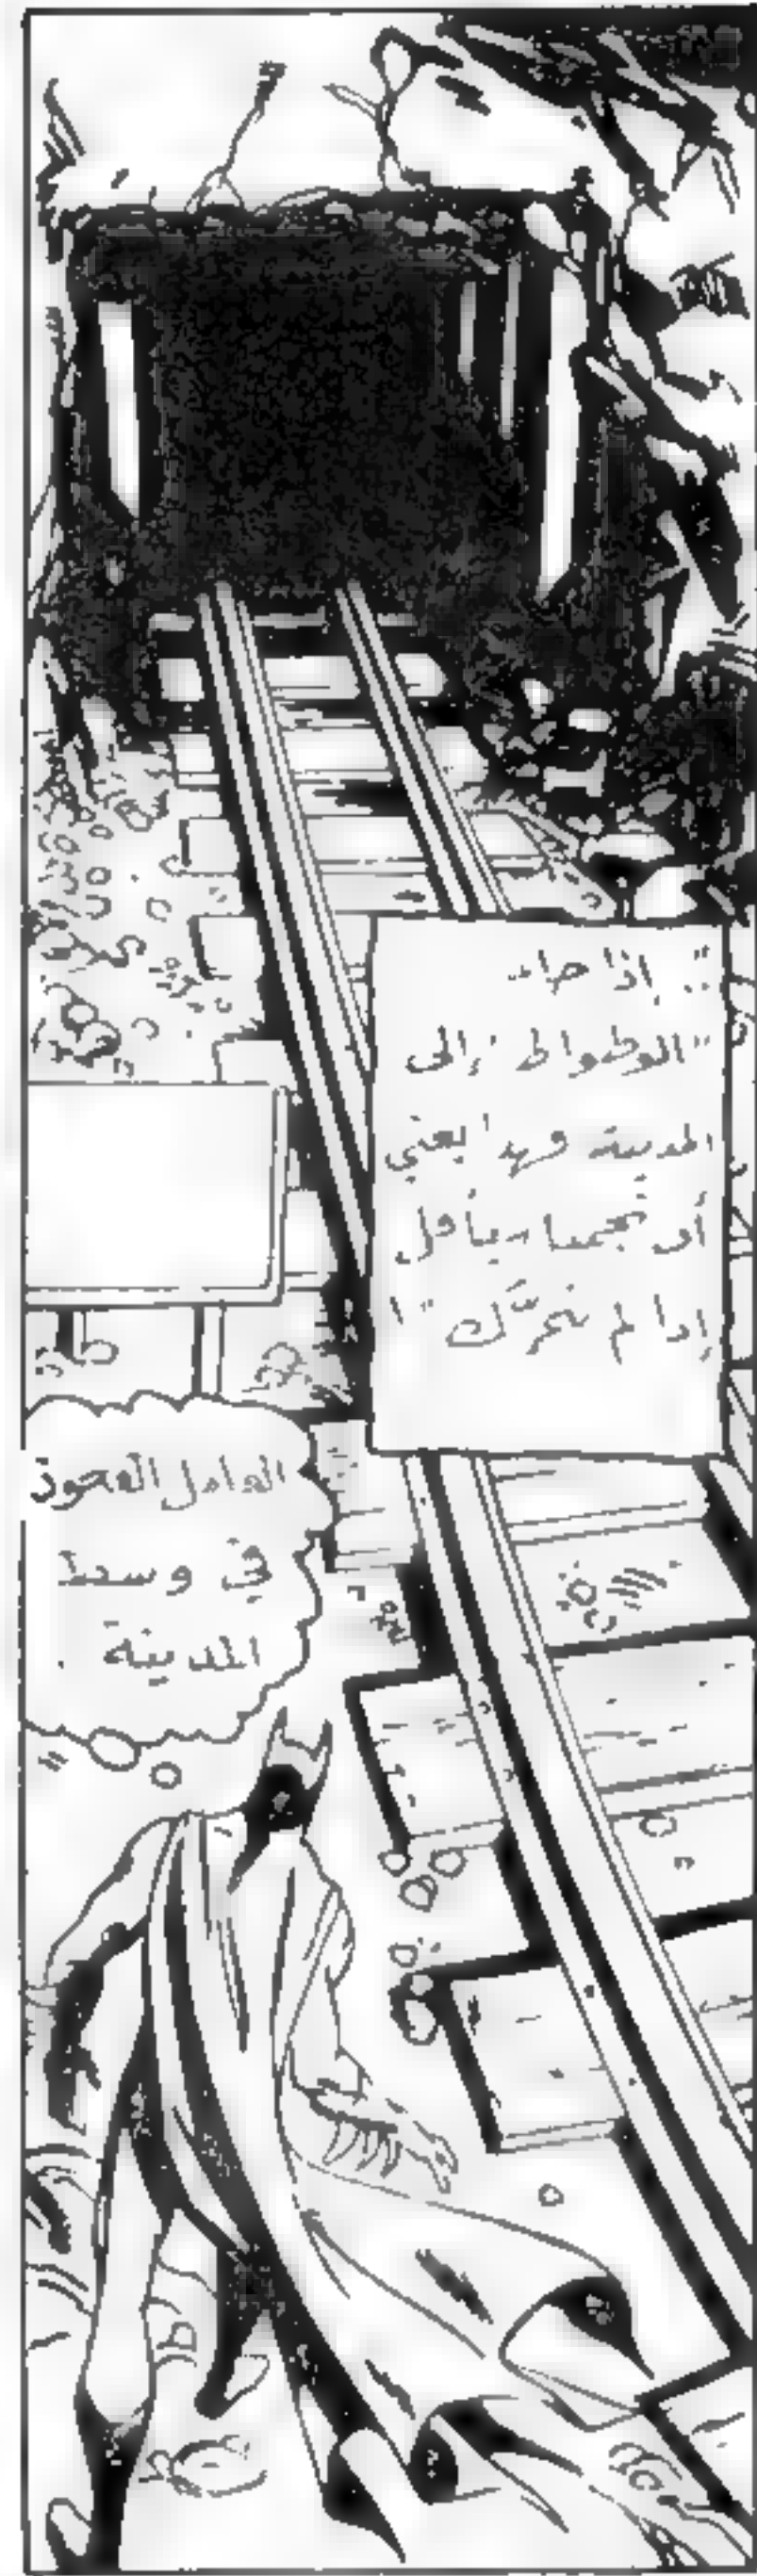 ".. إذا جاء
"الوطواط" إلى
المدينة فهذا يعني
أن نجمنا سيأفل
إذا لم نتحرّك"!
العامل العجوز
في وسط
المدينة